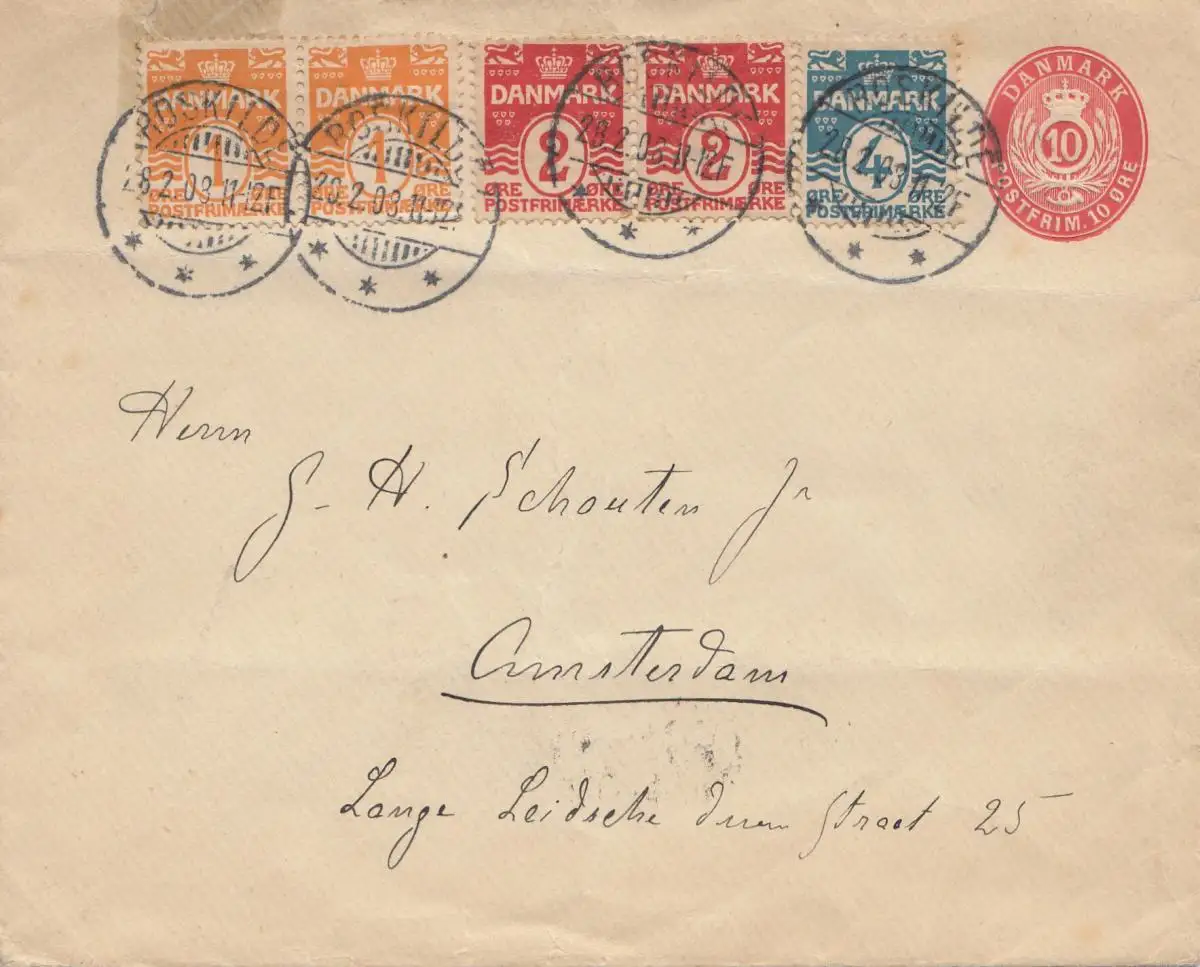 DANMARK DANMARK DANMARK DANMARK DANMARK
1 1 2 2 4
ØRE ØRE ØRE ØRE ØRE ØRE ØRE ØRE
POSTFRIMÆRKE POSTFRIMÆRKE POSTFRIMÆRKE POSTFRIMÆRKE POSTFRIMÆRKE
DANMARK
10
POSTFRIM. 10 ØRE
ROSKILDE
28.2.08.11-12F
ROSKILDE
28.2.08.11-12F
ROSKILDE
28.2.08.11-12F
ROSKILDE
28.2.08.11-12F
Herrn
G. H. Schouten Jr
Amsterdam
Lange Leidsche Straat 25